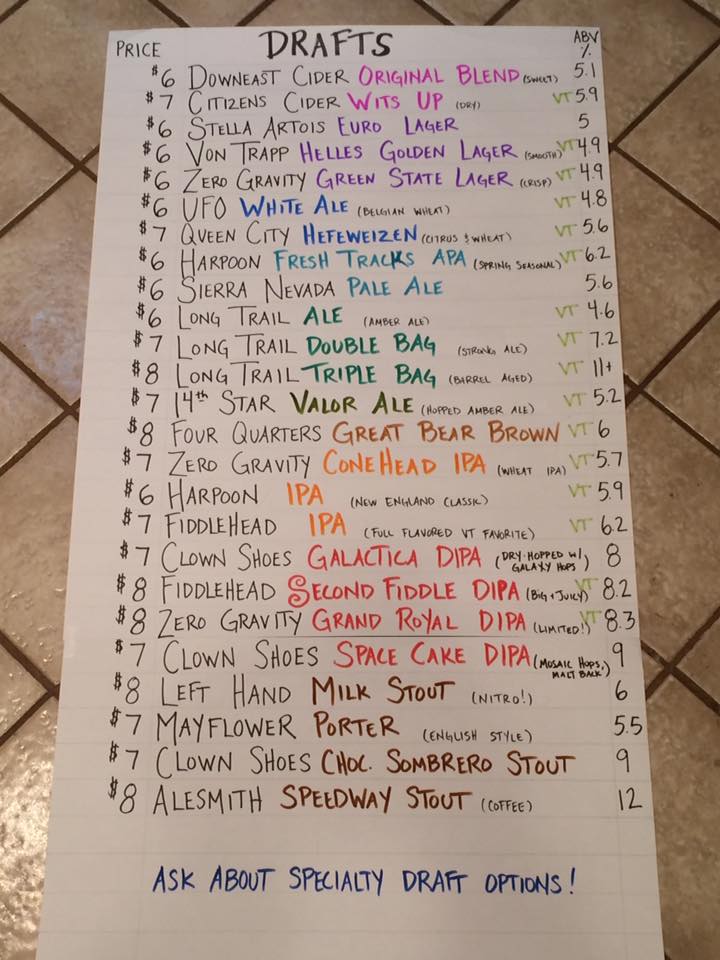 PRICE DRAFTS ABV %
$6 DOWNEAST CIDER ORIGINAL BLEND (SWEET) 5.1
$7 CITIZENS CIDER WITS UP (DRY) VT 5.9
$6 STELLA ARTOIS EURO LAGER 5
$6 VON TRAPP HELLES GOLDEN LAGER (SMOOTH) VT 4.9
$6 ZERO GRAVITY GREEN STATE LAGER (CRISP) VT 4.9
$6 UFO WHITE ALE (BELGIAN WHEAT) VT 4.8
$7 QUEEN CITY HEFEWEIZEN (CITRUS & WHEAT) VT 5.6
$6 HARPOON FRESH TRACKS APA (SPRING SEASONAL) VT 6.2
$6 SIERRA NEVADA PALE ALE 5.6
$6 LONG TRAIL ALE (AMBER ALE) VT 4.6
$7 LONG TRAIL DOUBLE BAG (STRONG ALE) VT 7.2
$8 LONG TRAIL TRIPLE BAG (BARREL AGED) VT 11+
$7 14th STAR VALOR ALE (HOPPED AMBER ALE) VT 5.2
$8 FOUR QUARTERS GREAT BEAR BROWN VT 6
$7 ZERO GRAVITY CONEHEAD IPA (WHEAT IPA) VT 5.7
$6 HARPOON IPA (NEW ENGLAND CLASSIC) VT 5.9
$7 FIDDLEHEAD IPA (FULL FLAVORED VT FAVORITE) VT 6.2
$7 CLOWN SHOES GALACTICA DIPA (DRY-HOPPED W/ GALAXY HOPS) 8
$8 FIDDLEHEAD SECOND FIDDLE DIPA (BIG + JUICY) VT 8.2
$8 ZERO GRAVITY GRAND ROYAL DIPA (LIMITED!) VT 8.3
$7 CLOWN SHOES SPACE CAKE DIPA (MOSAIC HOPS, MALT BACK) 9
$8 LEFT HAND MILK STOUT (NITRO!) 6
$7 MAYFLOWER PORTER (ENGLISH STYLE) 5.5
$7 CLOWN SHOES CHOC. SOMBRERO STOUT 9
$8 ALESMITH SPEEDWAY STOUT (COFFEE) 12
ASK ABOUT SPECIALTY DRAFT OPTIONS!